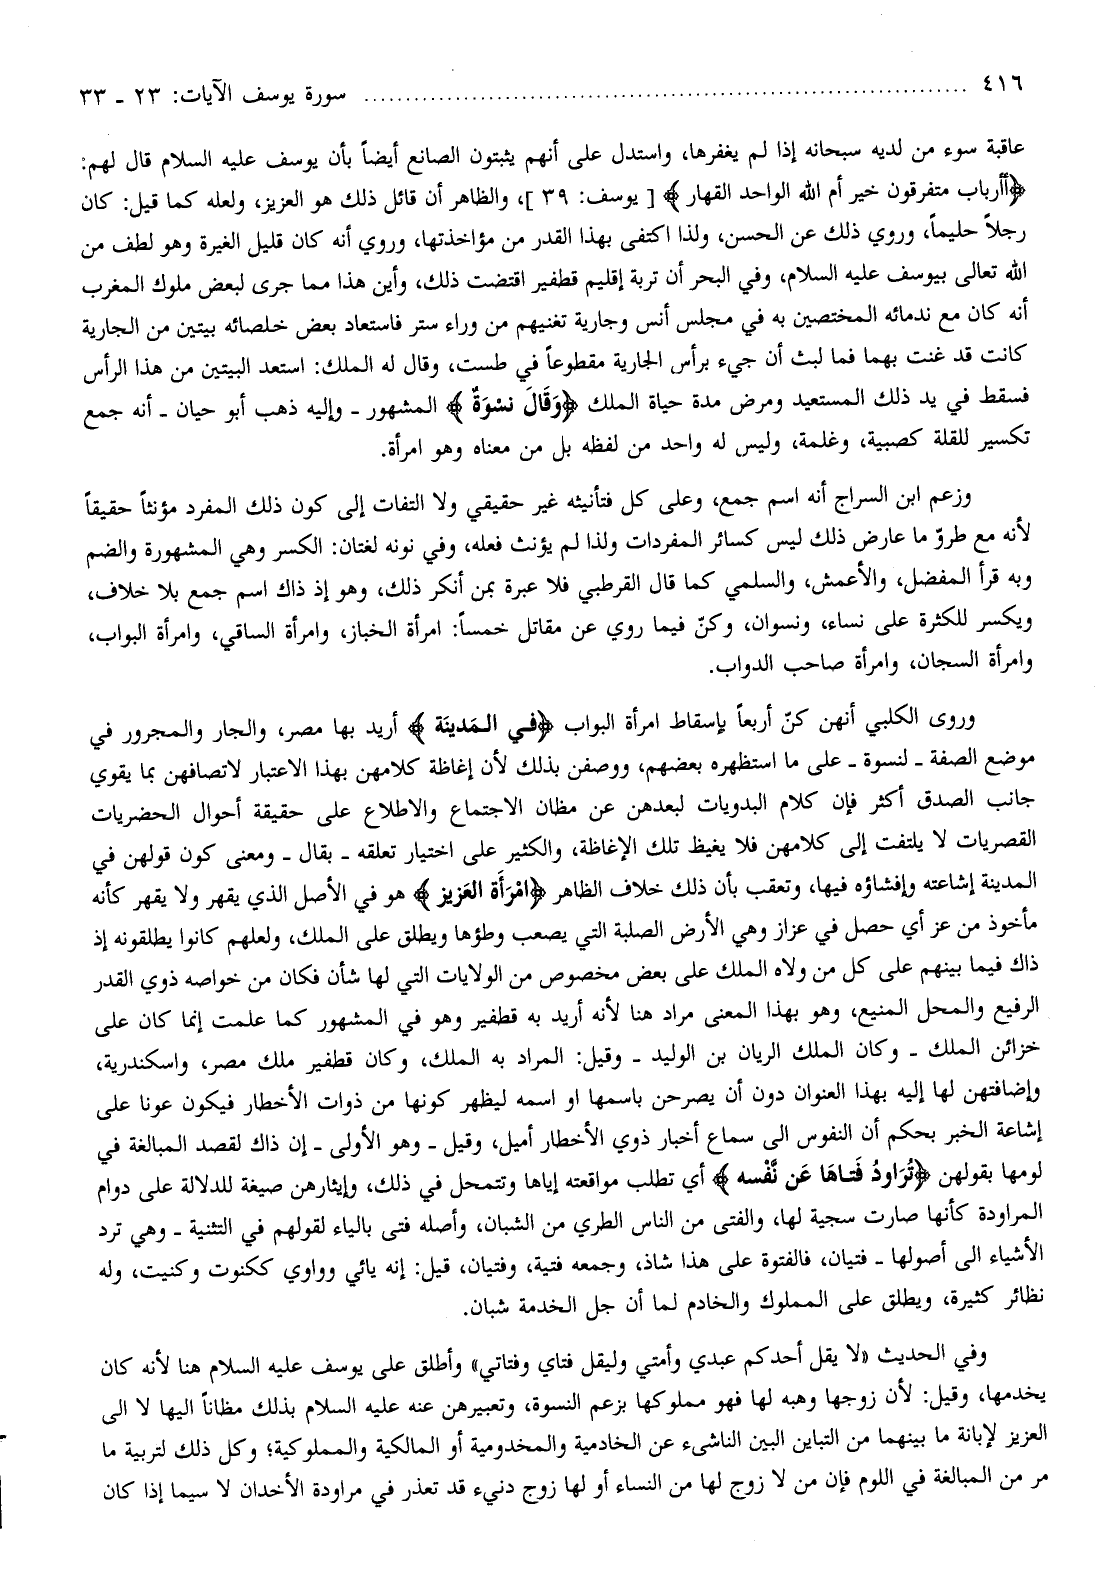 ٤١٦ ........................................ سورة يوسف الآيات: ٢٣ ـ ٣٣
عاقبة سوء من لديه سبحانه إذا لم يغفرها، واستدل على أنهم يثبتون الصانع أيضاً بأن يوسف عليه السلام قال لهم:
﴿أأرباب متفرقون خير أم الله الواحد القهار﴾ [ يوسف: ٣٩ ]، والظاهر أن قائل ذلك هو العزيز، ولعله كما قيل: كان
رجلاً حليماً، وروي ذلك عن الحسن، ولذا اكتفى بهذا القدر من مؤاخذتها، وروي أنه كان قليل الغيرة وهو لطف من
الله تعالى بيوسف عليه السلام، وفي البحر أن تربة إقليم قطفير اقتضت ذلك، وأين هذا مما جرى لبعض ملوك المغرب
أنه كان مع ندمائه المختصين به في مجلس أنس وجارية تغنيهم من وراء ستر فاستعاد بعض خلصائه بيتين من الجارية
كانت قد غنت بهما فما لبث أن جيء برأس الجارية مقطوعاً في طست، وقال له الملك: استعد البيتين من هذا الرأس
فسقط في يد ذلك المستعيد ومرض مدة حياة الملك ﴿وَقَالَ نسْوَةٌ﴾ المشهور ـ وإليه ذهب أبو حيان ـ أنه جمع
تكسير للقلة كصبية، وغلمة، وليس له واحد من لفظه بل من معناه وهو امرأة.
وزعم ابن السراج أنه اسم جمع، وعلى كل فتأنيثه غير حقيقي ولا التفات إلى كون ذلك المفرد مؤنثاً حقيقاً
لأنه مع طروّ ما عارض ذلك ليس كسائر المفردات ولذا لم يؤنث فعله، وفي نونه لغتان: الكسر وهي المشهورة والضم
وبه قرأ المفضل، والأعمش، والسلمي كما قال القرطبي فلا عبرة بمن أنكر ذلك، وهو إذ ذاك اسم جمع بلا خلاف،
ويكسر للكثرة على نساء، ونسوان، وكنّ فيما روي عن مقاتل خمساً: امرأة الخباز، وامرأة الساقي، وامرأة البواب،
وامرأة السجان، وامرأة صاحب الدواب.
وروى الكلبي أنهن كنّ أربعاً بإسقاط امرأة البواب ﴿في المَدينَة﴾ أريد بها مصر، والجار والمجرور في
موضع الصفة ـ لنسوة ـ على ما استظهره بعضهم، ووصفن بذلك لأن إغاظة كلامهن بهذا الاعتبار لاتصافهن بما يقوي
جانب الصدق أكثر فإن كلام البدويات لبعدهن عن مظان الاجتماع والاطلاع على حقيقة أحوال الحضريات
القصريات لا يلتفت إلى كلامهن فلا يغيظ تلك الإغاظة، والكثير على اختيار تعلقه ـ بقال ـ ومعنى كون قولهن في
المدينة إشاعته وإفشاؤه فيها، وتعقب بأن ذلك خلاف الظاهر ﴿امْرَأَة العَزيز﴾ هو في الأصل الذي يقهر ولا يقهر كأنه
مأخوذ من عز أي حصل في عزاز وهي الأرض الصلبة التي يصعب وطؤها ويطلق على الملك، ولعلهم كانوا يطلقونه إذ
ذاك فيما بينهم على كل من ولاه الملك على بعض مخصوص من الولايات التي لها شأن فكان من خواصه ذوي القدر
الرفيع والمحل المنيع، وهو بهذا المعنى مراد هنا لأنه أريد به قطفير وهو في المشهور كما علمت إنما كان على
خزائن الملك ـ وكان الملك الريان بن الوليد ـ وقيل: المراد به الملك، وكان قطفير ملك مصر، واسكندرية،
وإضافتهن لها إليه بهذا العنوان دون أن يصرحن باسمها او اسمه ليظهر كونها من ذوات الأخطار فيكون عونا على
إشاعة الخبر بحكم أن النفوس الى سماع أخبار ذوي الأخطار أميل، وقيل ـ وهو الأولى ـ إن ذاك لقصد المبالغة في
لومها بقولهن ﴿تُرَاودُ فَتاهَا عَن نَّفْسه﴾ أي تطلب مواقعته إياها وتتمحل في ذلك، وإيثارهن صيغة للدلالة على دوام
المراودة كأنها صارت سجية لها، والفتى من الناس الطري من الشبان، وأصله فتى بالياء لقولهم في التثنية ـ وهي ترد
الأشياء الى أصولها ـ فتيان، فالفتوة على هذا شاذ، وجمعه فتية، وفتيان، قيل: إنه يائي وواوي ككنوت وكنيت، وله
نظائر كثيرة، ويطلق على المملوك والخادم لما أن جل الخدمة شبان.
وفي الحديث «لا يقل أحدكم عبدي وأمتي وليقل فتاي وفتاتي» وأطلق على يوسف عليه السلام هنا لأنه كان
يخدمها، وقيل: لأن زوجها وهبه لها فهو مملوكها بزعم النسوة، وتعبيرهن عنه عليه السلام بذلك مظاناً اليها لا الى
العزيز لإبانة ما بينهما من التباين البين الناشىء عن الخادمية والمخدومية أو المالكية والمملوكية؛ وكل ذلك لتربية ما
مر من المبالغة في اللوم فإن من لا زوج لها من النساء أو لها زوج دنيء قد تعذر في مراودة الأخدان لا سيما إذا كان